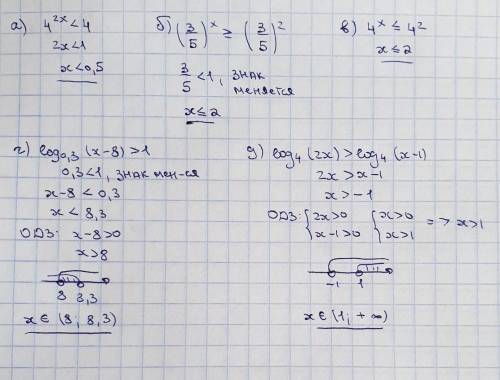 а) 4^{2x} < 4
2x < 1
x < 0,5
б) (3/5)^x ≥ (3/5)^2
3/5 < 1, знак
меняется
x ≤ 2
в) 4^x ≤ 4^2
x ≤ 2
г) log_{0,3} (x-8) > 1
0,3 < 1, знак мен-ся
x-8 < 0,3
x < 8,3
ОДЗ: x-8 > 0
x > 8
8 8,3
x ∈ (8; 8,3)
д) log_4 (2x) > log_4 (x-1)
2x > x-1
x > -1
ОДЗ: { 2x > 0 { x > 0
{ x-1 > 0 { x > 1 => x > 1
-1 1
x ∈ (1; +∞)